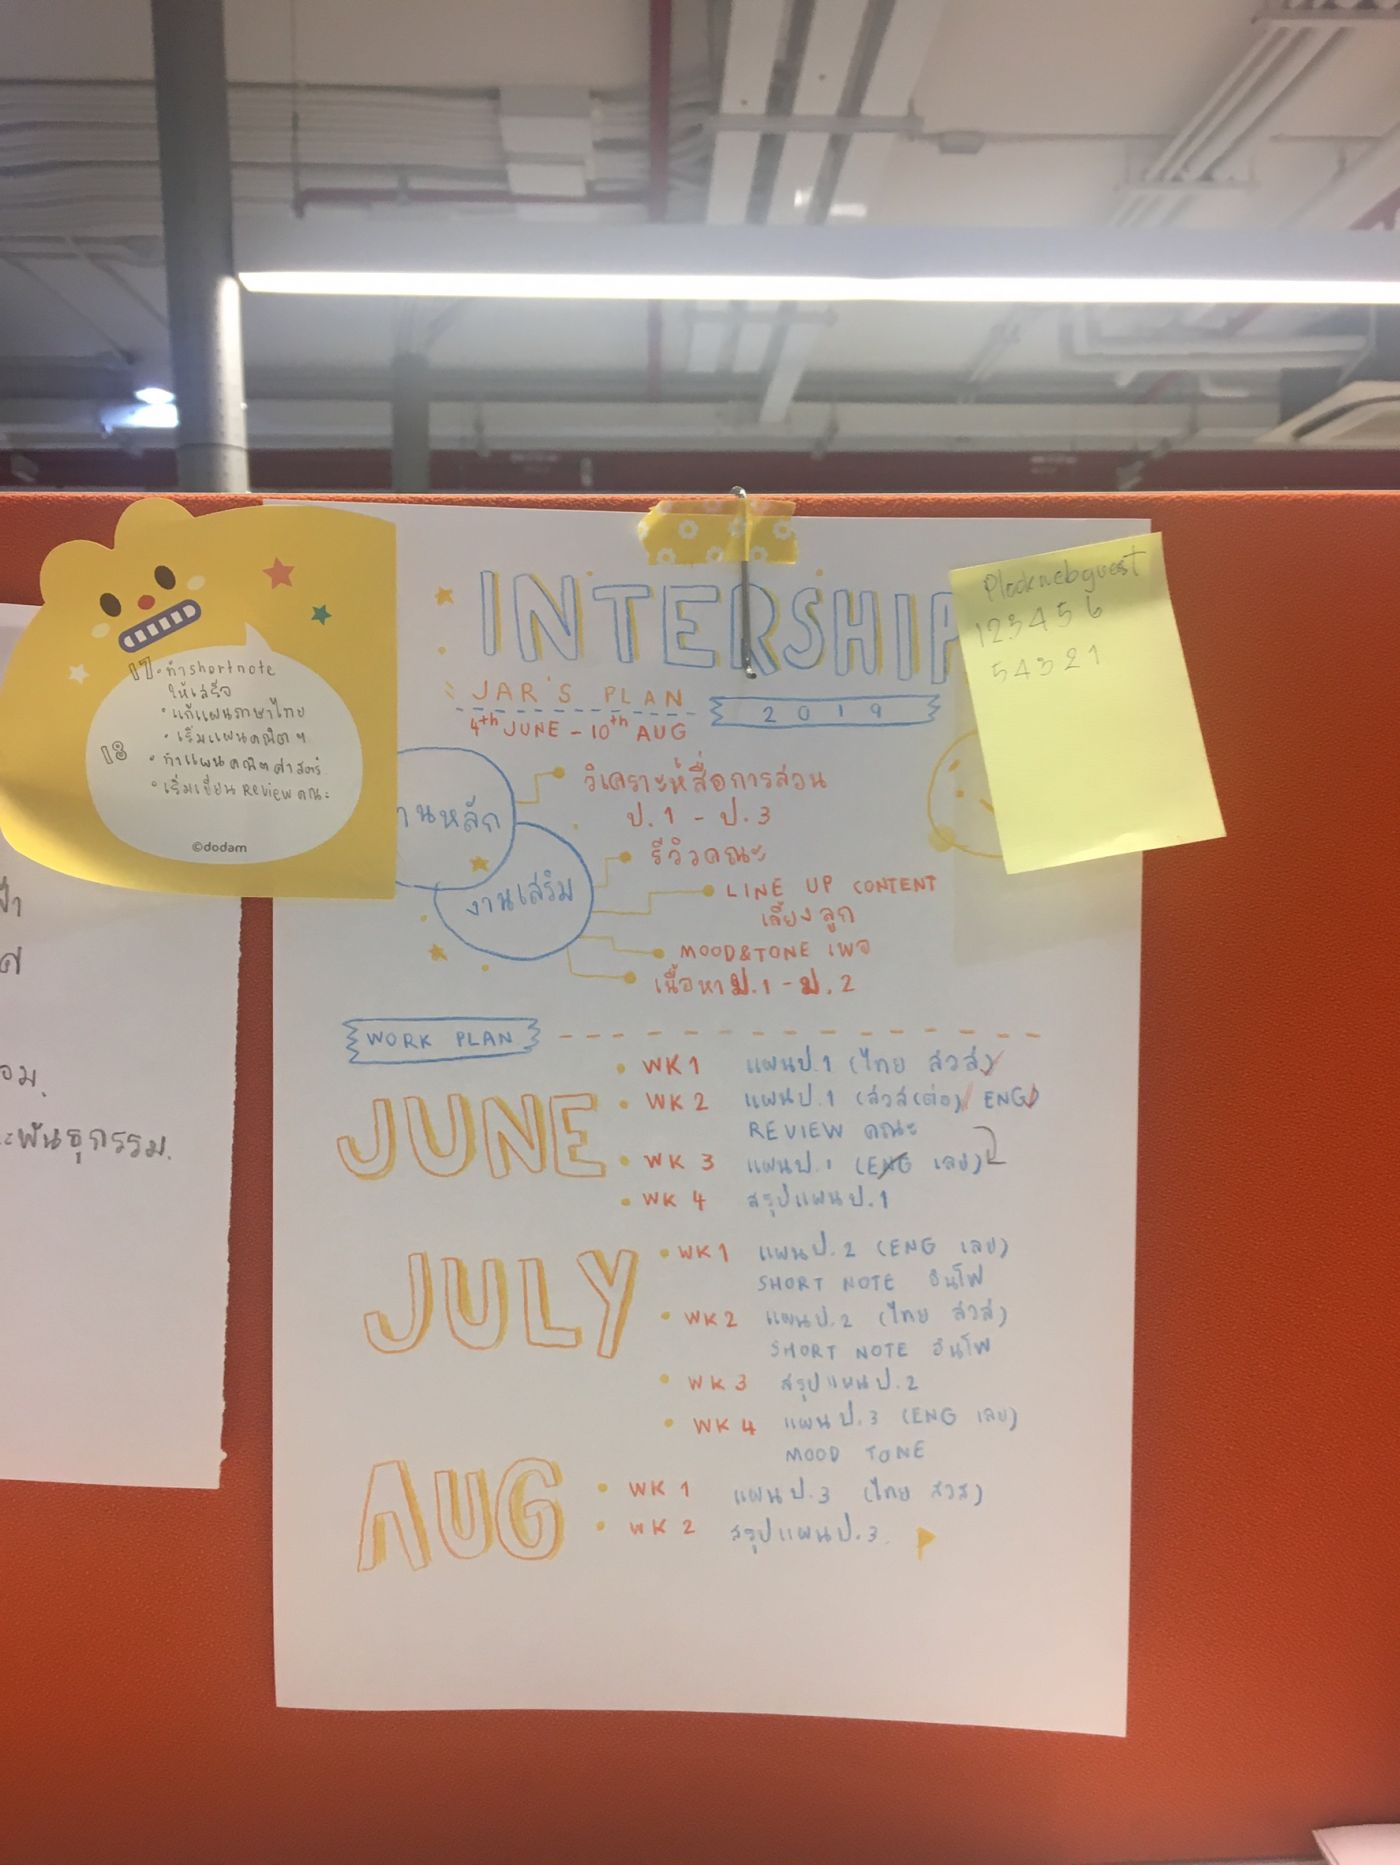 17 • ทำ shortnote
ให้เสร็จ
• แก้แผนภาษาไทย
• เริ่มแผนคณิตฯ
18 • ทำแผนคณิตศาสตร์
• เริ่มเขียน Review คณะ
©dodam
INTERSHIP
JAR'S PLAN
2019
4th JUNE - 10th AUG
Plookwebguest
123456
54321
านหลัก
วิเคราะห์สื่อการสวน
ป.1 - ป.3
งานเสริม
รีวิวคณะ
LINE UP CONTENT
เลี้ยงลูก
MOOD&TONE เพจ
เนื้อหา ป.1 - ป.2
WORK PLAN
JUNE
• WK 1 แผนป.1 (ไทย สวส)
• WK 2 แผนป.1 (สวส(ต่อ) ENG)
REVIEW คณะ
• WK 3 แผนป.1 (ENG เลข)
• WK 4 สรุปแผนป.1
JULY
• WK1 แผนป.2 (ENG เลข)
SHORT NOTE อินโฟ
• WK2 แผนป.2 (ไทย สวส)
SHORT NOTE อินโฟ
• WK 3 สรุปแผนป.2
• WK 4 แผนป.3 (ENG เลข)
MOOD TONE
AUG
• WK 1 แผนป.3 (ไทย สวส)
• WK 2 สรุปแผนป.3
อม.
ะพันธุกรรม.